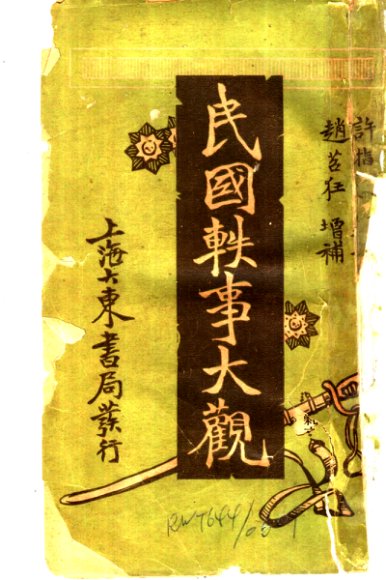 許指
趙苕狂 增補
民國軼事大觀
上海大東書局發行